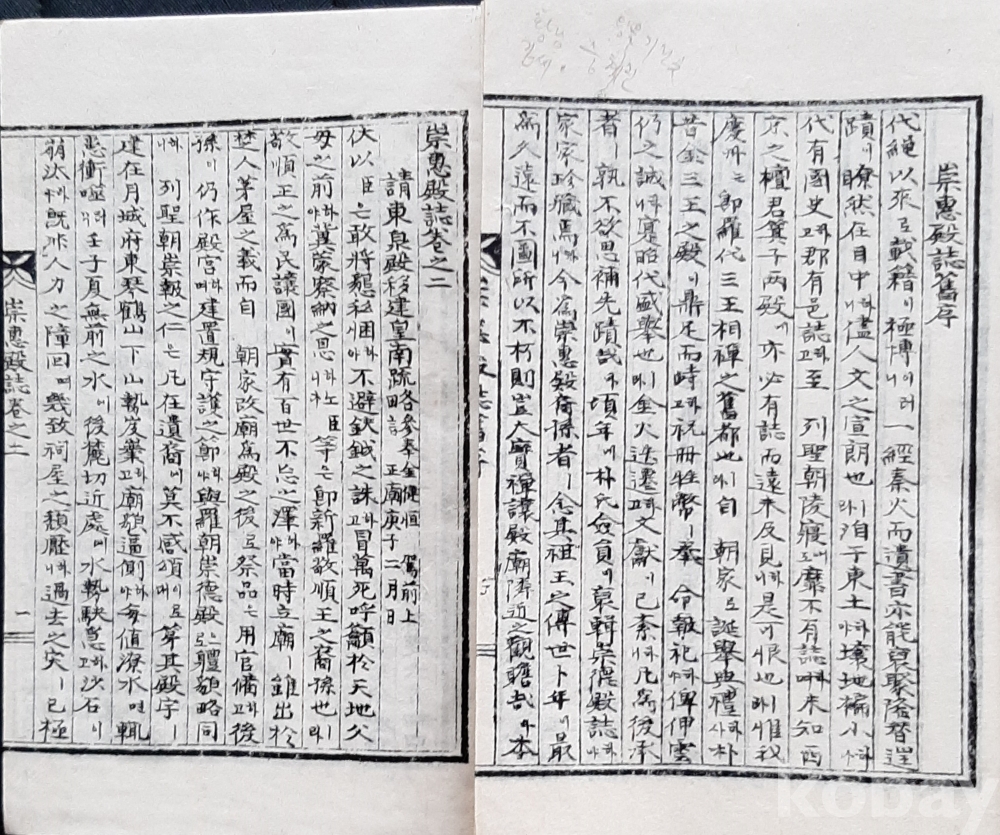 崇惠殿誌舊序
代繩以來로載籍이極博이러一經秦火而遺書亦能裒聚
蹟이瞭然在目中하니儘人文之宣朗也라洎于東土하야壤地褊小하
代有國史고하郡有邑誌고하至 列聖朝陵寢도靡不有誌 未知西
京之檀君箕子兩殿에亦必有誌而遠未及見하니是可恨也라惟我
慶州는卽羅代三王相禪之舊都也라自 朝家로誕擧典禮하사朴
昔金三王之殿이鼎足而峙고하祝冊牲幣를奉 命報祀하
仍之誠하寔昭代盛擧也나金火迭遷에文獻이已紊하니凡爲後承
者ㅣ孰不欲思補先蹟哉아頃年에朴氏僉員이裒輯崇德殿誌하야
家家珍藏焉하니今爲崇惠殿裔孫者ㅣ念其祖王之傳世卜年이最
爲久遠而不圖所以不朽則豈大寶禪讓殿廟隣近之觀瞻哉아本
환영
금액
崇惠殿誌卷之二
請東泉殿移建皇南疏略 參奉金健恒 駕前上
正廟庚子二月日
伏以臣은敢將懇私悃하야不避鈇鉞之誅고하冒萬死呼籲於天地父
母之前하야冀蒙察納之恩하노니臣等은卽新羅敬順王之裔孫也라
敬順王之爲民讓國이實有百世不忘之澤하야當時立廟ㅣ雖出於
楚人茅屋之義而自 朝家改廟爲殿之後로祭品은用官備고하後
孫이仍作殿宮하며建置規守護之節하야與羅朝崇德殿로體貌略同
하니 列聖朝崇報之仁은凡在遺裔에莫不感頌이로 第其殿宇ㅣ
建在月城府東琴鶴山下山 고하廟貌逼側하야每值潦水면輒
患衝噬러니壬子夏無前之水에後麓切近處에水勢駃急고하沙石이
崩汰하야旣非人力之障回며幾致祠屋之頹壓하니過去之災ㅣ已極
崇惠殿誌卷之二
一
kobay